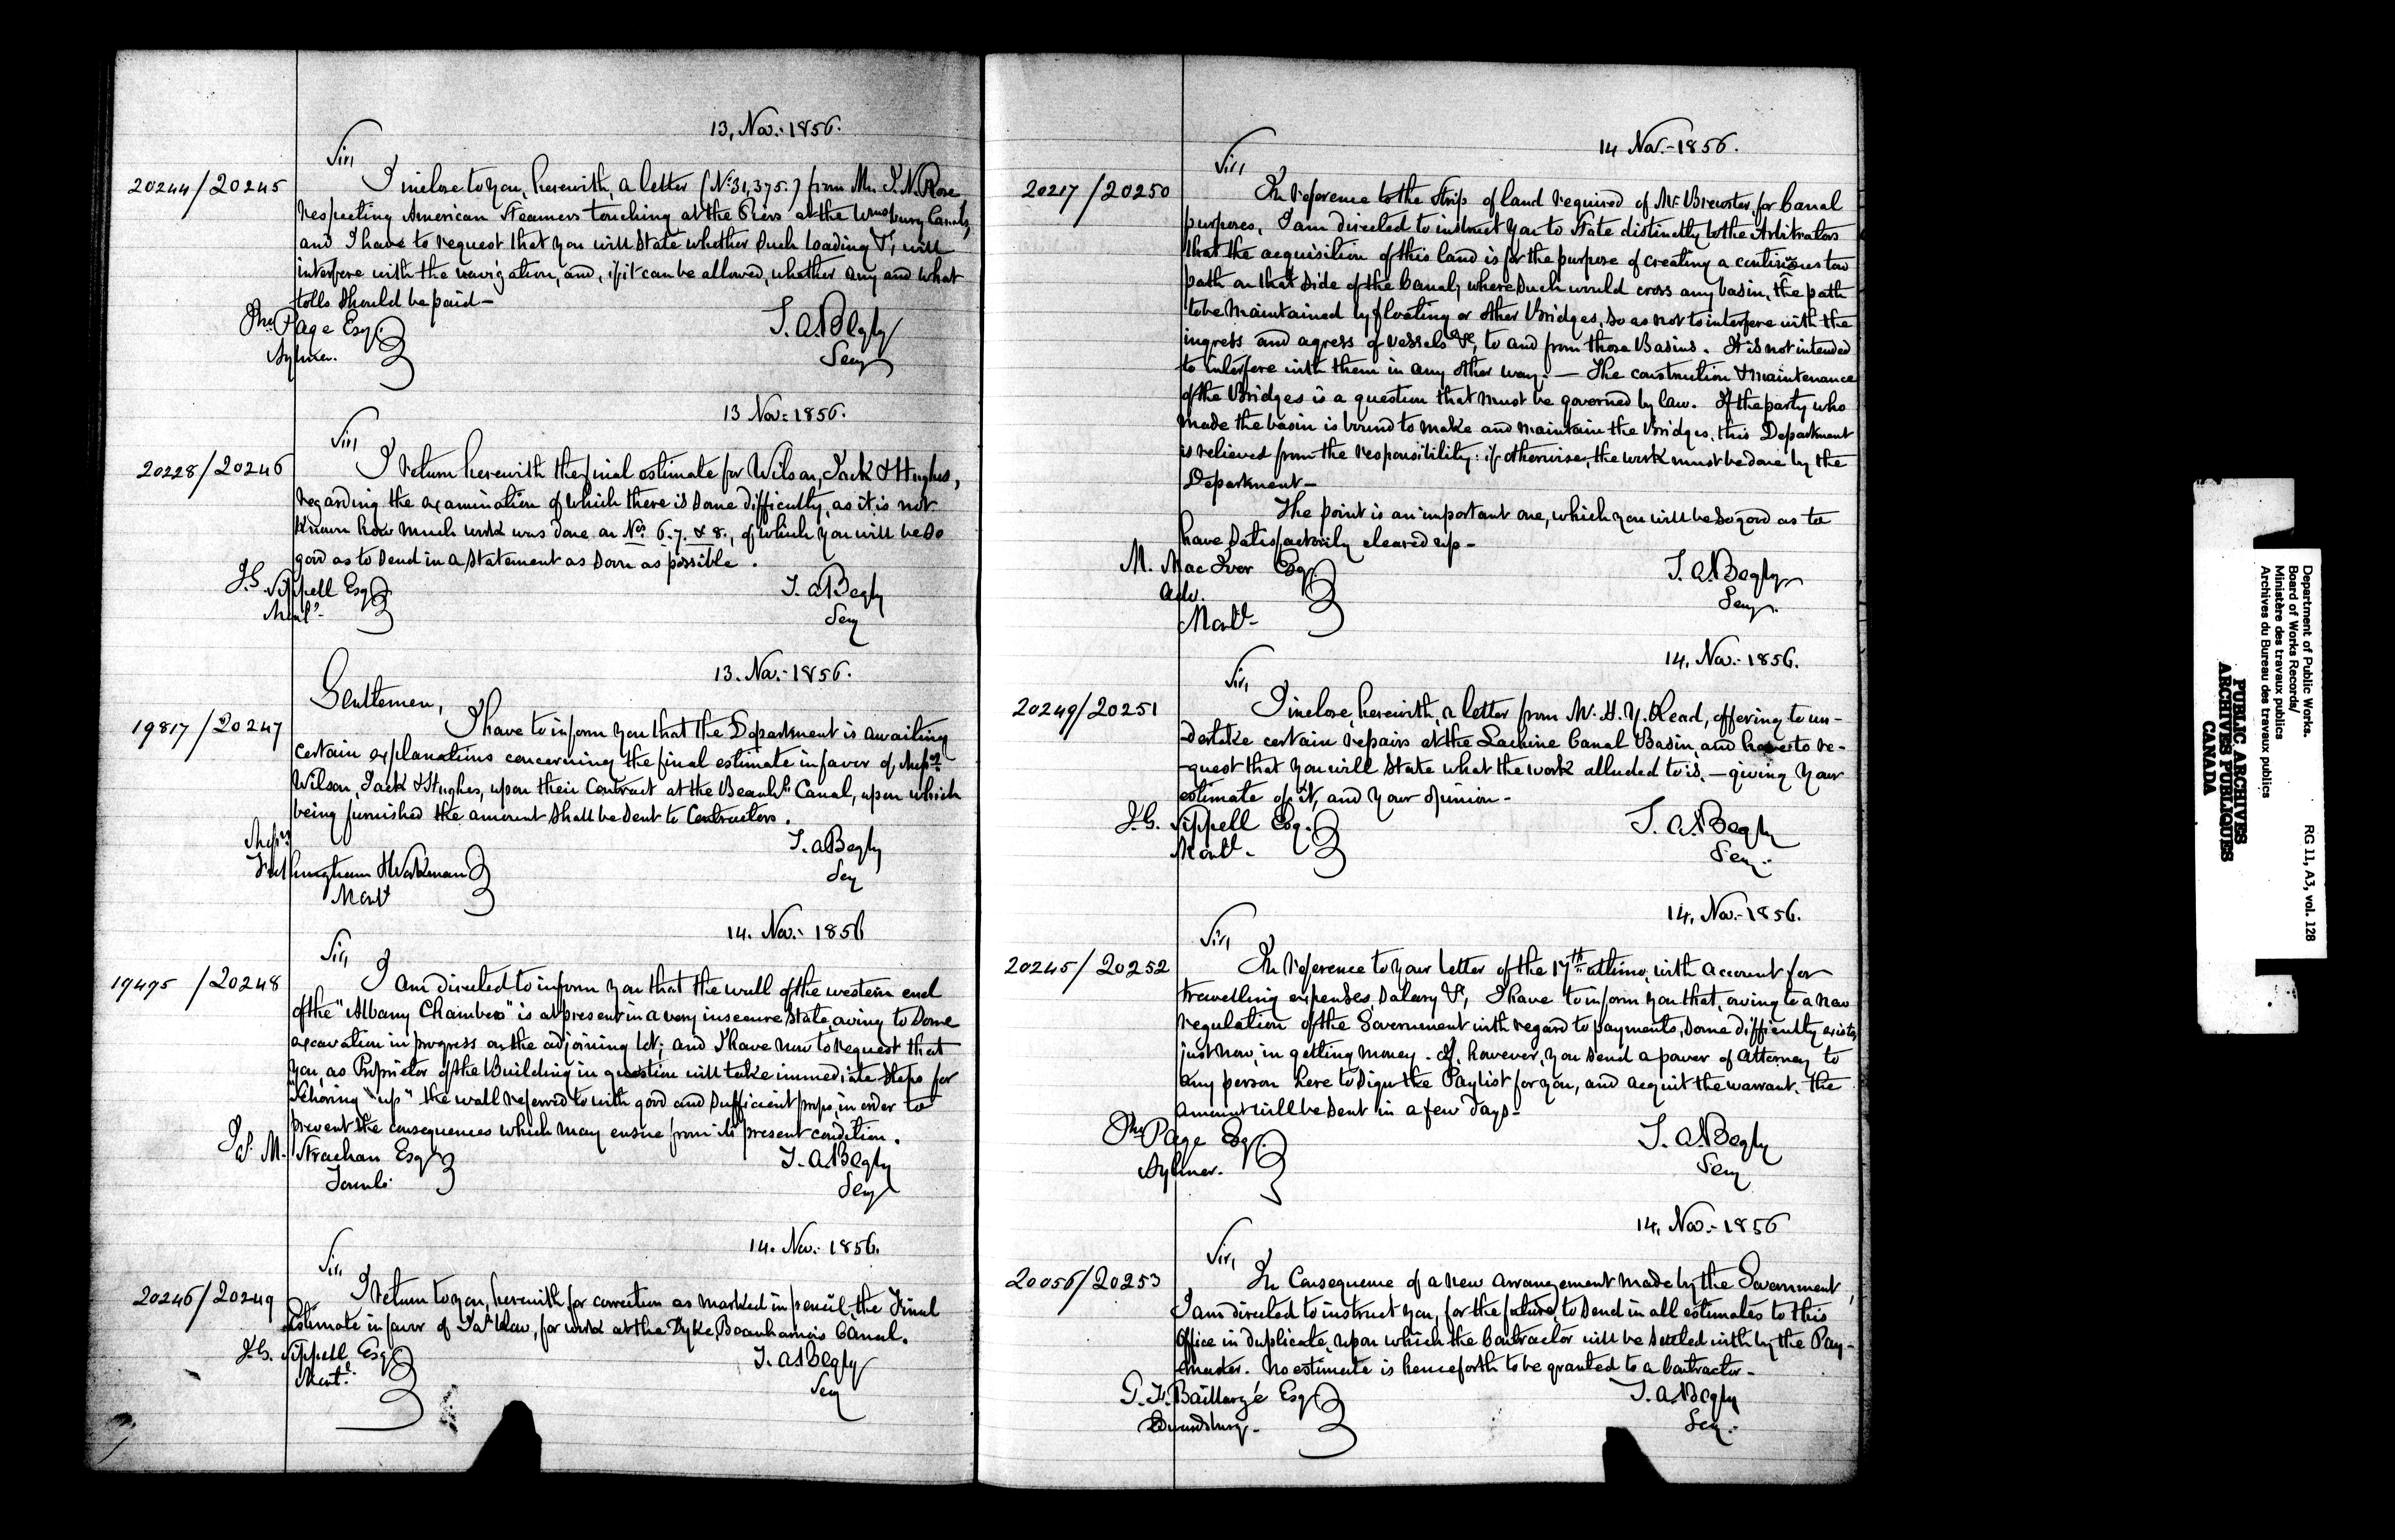 13, Nov.- 1856.
Sir,
20244/20245
I inclose to you, herewith, a letter (No 31,375.) from Mr. I. N. Rose
respecting American Steamers touching at the Piers at the Wmsburg Canals,
and I have to request that you will state whether such loading &c, will
interfere with the navigation, and, if it can be allowed, whether any and what
tolls should be paid—
Jno. Page Esq.
Aylmer.
T. A. Begly
Secy
13 Nov: 1856.
Sir,
20228/20246
I return herewith the final estimate for Wilson, Jack & Hughes,
regarding the examination of which there is some difficulty, as it is not
known how much work was done on Nos 6. 7. & 8., of which you will be so
good as to send in a statement as soon as possible.
J. G. Sippell Esq
Montl.
T. A. Begly
Secy
13. Nov.- 1856.
Gentlemen,
19817/20247
I have to inform you that the Department is awaiting
certain explanations concerning the final estimate in favor of Messrs
Wilson, Jack & Hughes, upon their Contract at the Beauhs Canal, upon which
being furnished the amount shall be sent to Contractors.
Messrs
Frothingham & Workman
Montl
T. A. Begly
Secy
14. Nov.- 1856
Sir,
19495/20248
I am directed to inform you that the wall of the western end
of the "Albany Chambers" is at present in a very insecure state, owing to some
excavation in progress on the adjoining lot; and I have now to request that
you, as Proprietor of the Building in question will take immediate steps for
"shoring "up" the wall referred to with good and sufficient props, in order to
prevent the consequences which may ensue from its present condition.
Js. M. Strachan Esq
Toronto.
T. A. Begly
Secy
14. Nov.- 1856.
Sir,
20246/20249
I return to you, herewith, for correction as marked in pencil, the Final
Estimate in favor of for work at the Dyke, Beauharnois Canal.
J. G. Sippell Esq
Montl.
T. A. Begly
Secy
14 Nov.- 1856.
Sir,
20217/20250
In reference to the Strip of land required of Mr. Brewster, for Canal
purposes, I am directed to instruct you to state distinctly to the Arbitrators
that the acquisition of this land is for the purpose of creating a continuous tow
path on that side of the Canal; where such would cross any basin, the path
to be maintained by floating or other Bridges, so as not to interfere with the
ingress and agress of vessels &c, to and from those Basins. It is not intended
to interfere with them in any other way.— The construction & maintenance
of the Bridges is a question that must be governed by law. If the party who
made the basin is bound to make and maintain the Bridges, this Department
is relieved from the responsibility: if otherwise, the work must be done by the
Department—
The point is an important one, which you will be so good as to
have satisfactorily cleared up—
M. Mac Iver Esq.
Adv.
Montl-
T. A. Begly
Secy.
14. Nov.- 1856.
Sir,
20249/20251
I inclose, herewith, a letter from Mr. H. Y. Read, offering to un-
-dertake certain repairs at the Lachine Canal Basin, and have to re-
-quest that you will state what the work alluded to is,—giving your
estimate of it, and your opinion—
J. G. Sippell Esq.
Montl-
T. A. Begly
Secy.
14. Nov.- 1856.
Sir,
20245/20252
In reference to your letter of the 17th ultimo, with account for
travelling expenses, salary &c, I have to inform you that, owing to a new
regulation of the Government with regard to payments, some difficulty exists,
just now, in getting money. If, however, you send a power of Attorney to
any person here to sign the Paylist for you, and acquit the warrant, the
amount will be sent in a few days—
Jno. Page Esq.
Aylmer.
T. A. Begly
Secy
14. Nov.- 1856
Sir,
20056/20253
In Consequence of a new arrangement made by the Government,
I am directed to instruct you, for the future, to send in all estimates to this
Office in duplicate, upon which the Contractor will be settled with by the Pay-
-master. No estimate is henceforth to be granted to a Contractor—
G. F. Baillargé Esq
Edwardsburg.
T. A. Begly
Secy.
Department of Public Works.
Board of Works Records/
Ministère des travaux publics
Archives du Bureau des travaux publics
RG 11, A3, vol. 128
PUBLIC ARCHIVES
ARCHIVES PUBLIQUES
CANADA